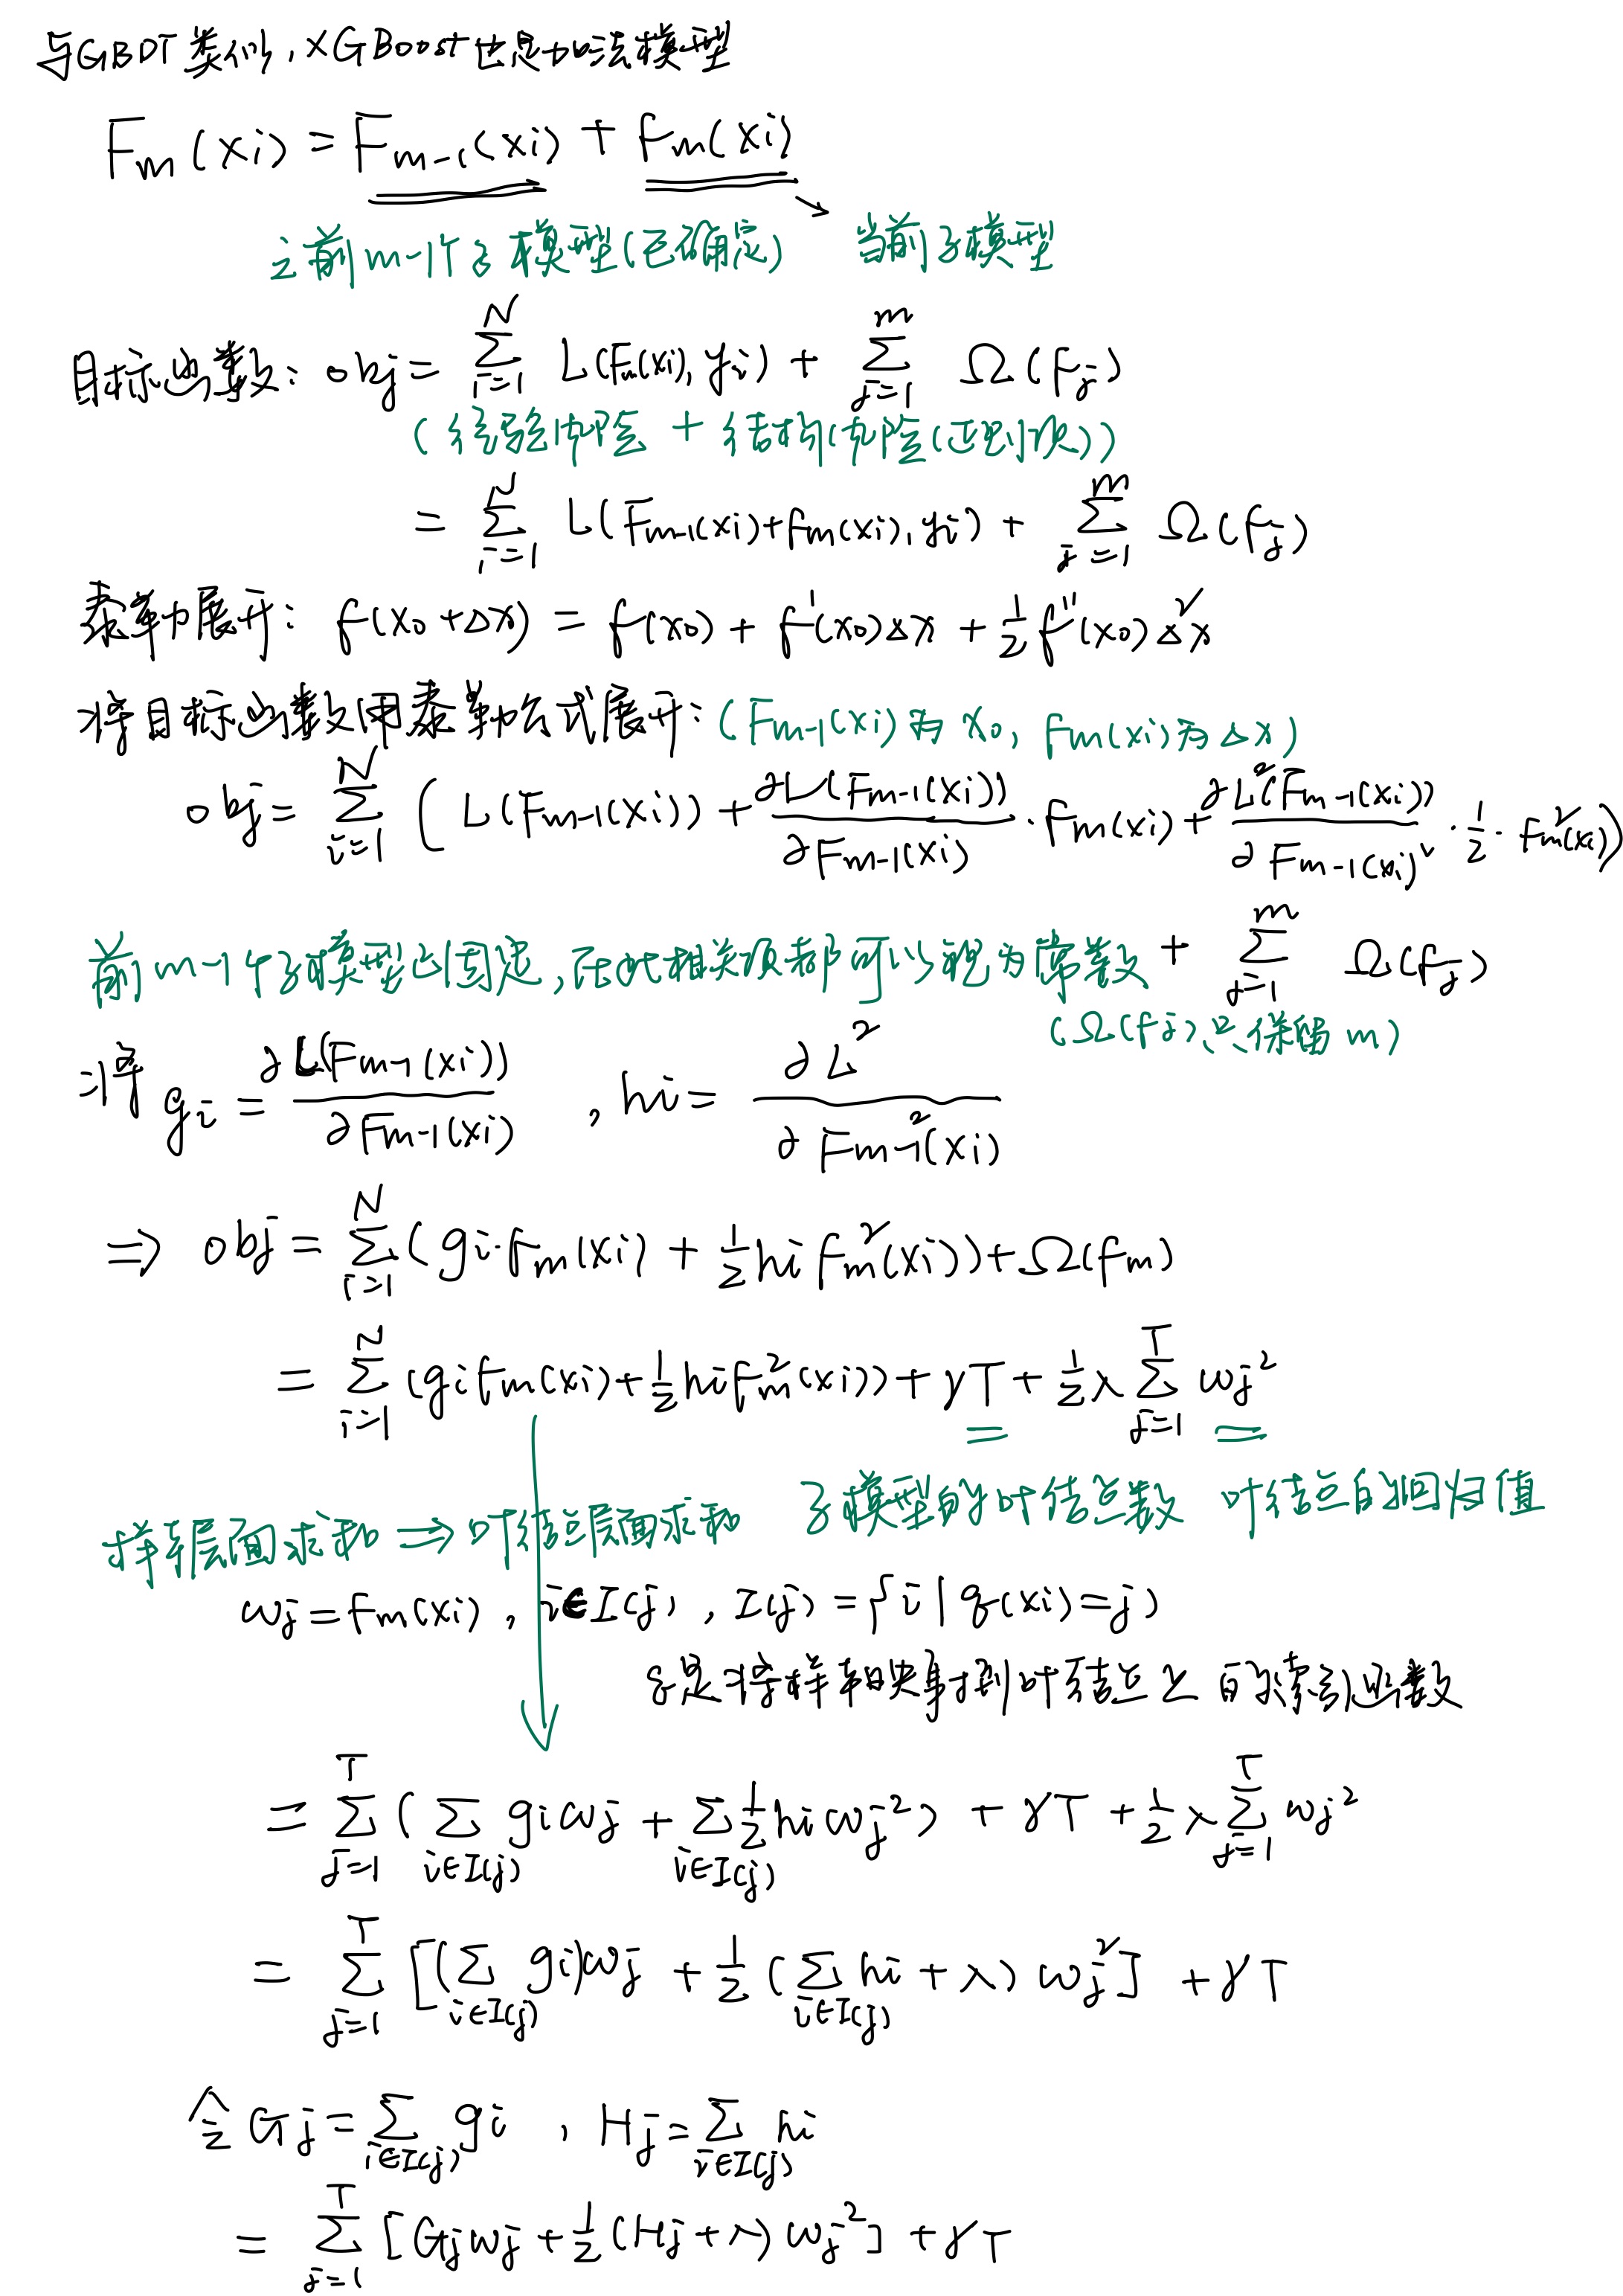 与GBDT类似,XGBoost也是加法模型
Fm(xi) = Fm-1(xi) + fm(xi)
之前m-1个子模型(已确定) 当前子模型
目标函数: obj = Σ_{i=1}^{N} L(Fm(xi), yi) + Σ_{j=1}^{m} Ω(fj)
(经验风险 + 结构风险(正则项))
= Σ_{i=1}^{N} L(Fm-1(xi)+fm(xi), yi) + Σ_{j=1}^{m} Ω(fj)
泰勒展开: f(x0+Δx) = f(x0) + f'(x0)Δx + 1/2 f''(x0)Δx²
将目标函数用泰勒公式展开:(Fm-1(xi)为x0, fm(xi)为Δx)
obj = Σ_{i=1}^{N} ( L(Fm-1(xi)) + ∂L(Fm-1(xi))/∂Fm-1(xi) · fm(xi) + ∂L²(Fm-1(xi))/∂Fm-1(xi)² · 1/2 · fm²(xi))
前m-1个子模型已固定,在此相关项都可以视为常数 + Σ_{j=1}^{m} Ω(fj)
(Ω(fj)只保留m)
将 gi = ∂L(Fm-1(xi))/∂Fm-1(xi) , hi = ∂L²/∂Fm-1²(xi)
⇒ obj = Σ_{i=1}^{N} (gi·fm(xi) + 1/2 hi fm²(xi)) + Ω(fm)
= Σ_{i=1}^{N} (gi fm(xi) + 1/2 hi fm²(xi)) + γT + 1/2 λ Σ_{j=1}^{T} ωj²
样本层面求和 ⇒ 叶结点层面求和 子模型的叶结点数 叶结点的回归值
ωj = fm(xi), i∈I(j), I(j) = {i | q(xi)=j}
q是将样本映射到叶结点上的索引函数
= Σ_{j=1}^{T} ( Σ_{i∈I(j)} gi ωj + Σ_{i∈I(j)} 1/2 hi ωj²) + γT + 1/2 λ Σ_{j=1}^{T} ωj²
= Σ_{j=1}^{T} [(Σ_{i∈I(j)} gi)ωj + 1/2 (Σ_{i∈I(j)} hi + λ) ωj²] + γT
令 Gj = Σ_{i∈I(j)} gi , Hj = Σ_{i∈I(j)} hi
= Σ_{j=1}^{T} [Gj ωj + 1/2 (Hj + λ) ωj²] + γT